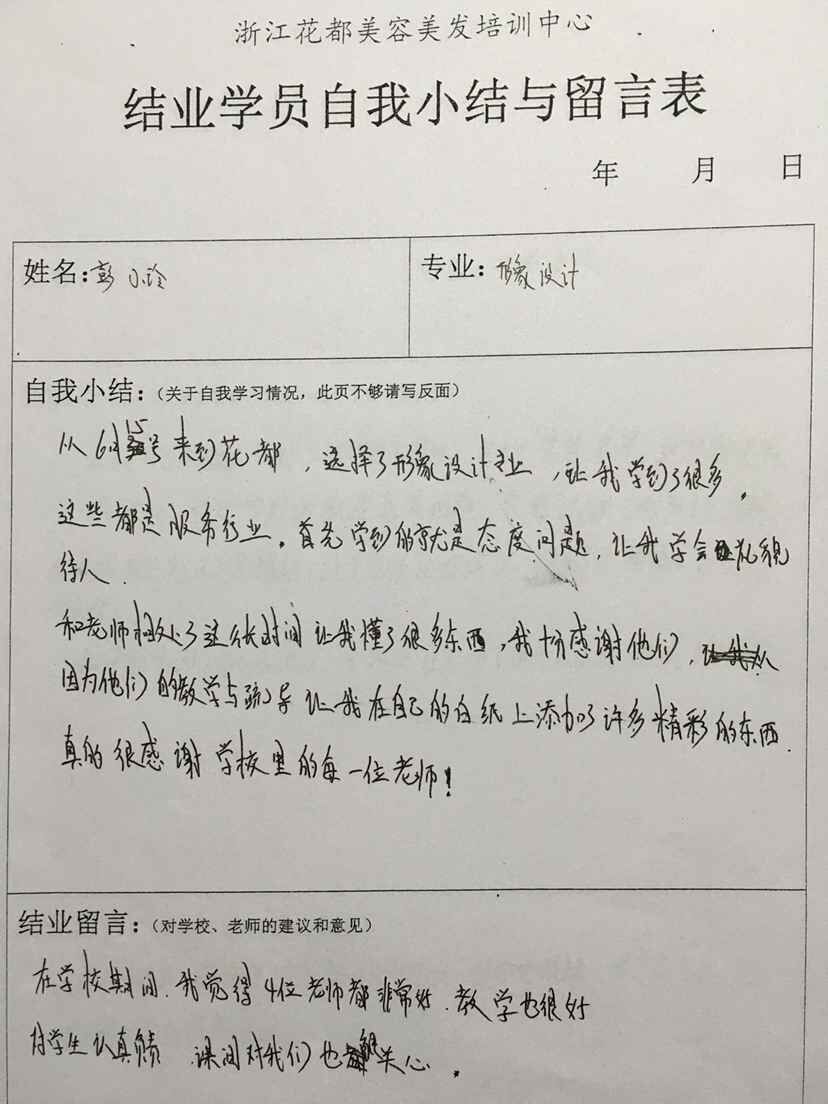 浙江花都美容美发培训中心
结业学员自我小结与留言表
年 月 日
姓名：彭小玲 专业：形象设计
自我小结：（关于自我学习情况，此页不够请写反面）
从6月15号来到花都，选择了形象设计专业，让我学到了很多。
这些都是服务行业。首先学到的就是态度问题，让我学会礼貌
待人.
和老师相处了这么长时间让我懂了很多东西，我十分感谢他们，
因为他们的教学与疏导让我在自己的白纸上添加了许多精彩的东西.
真的很感谢学校里的每一位老师！
结业留言：（对学校、老师的建议和意见）
在学校期间.我觉得4位老师都非常好.教学也很好
对学生认真负责 课间对我们也很关心.